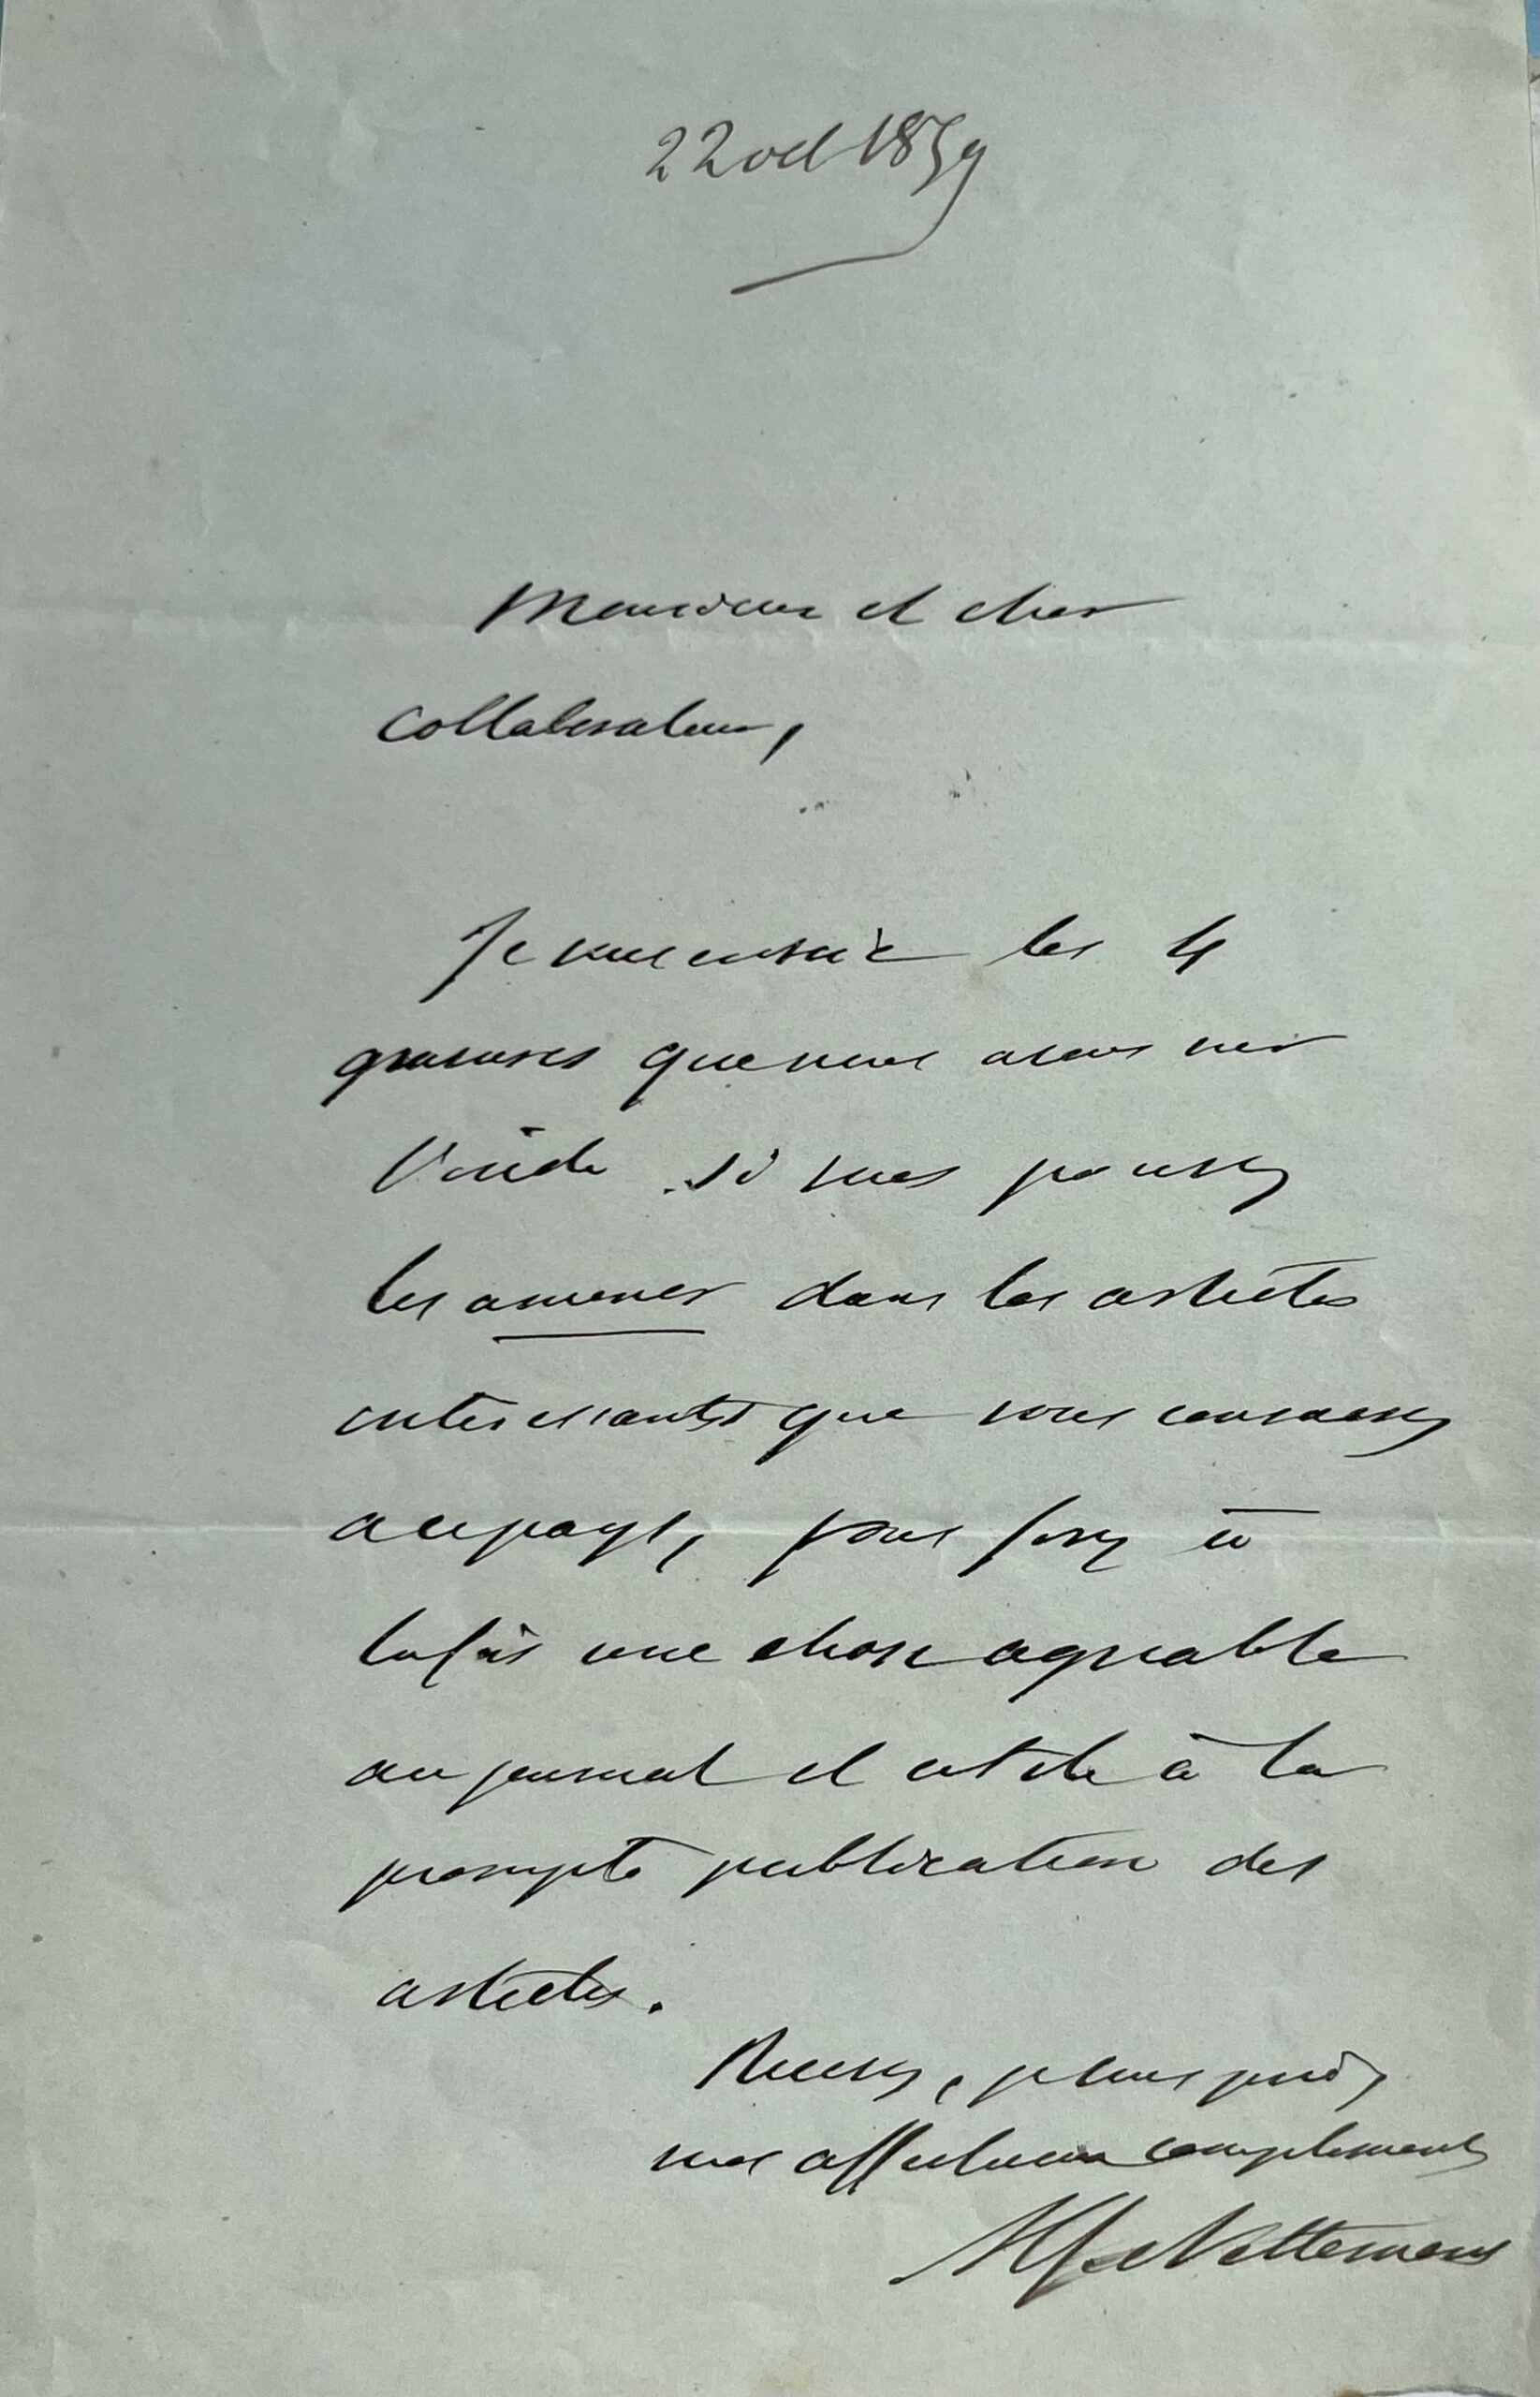 22 oct 1859
Monsieur et cher
Collaborateur,
Je vous envoie les 4
gravures que nous avons sur
Vendée. Si vous pouvez
les amener dans les articles
interessants que vous consacrez
au pays, vous ferez à
la fois une chose agreable
au journal et utile à la
prompte publication des
articles.
Recevez, je vous prie,
mes affectueux compliments
Alf Nettement